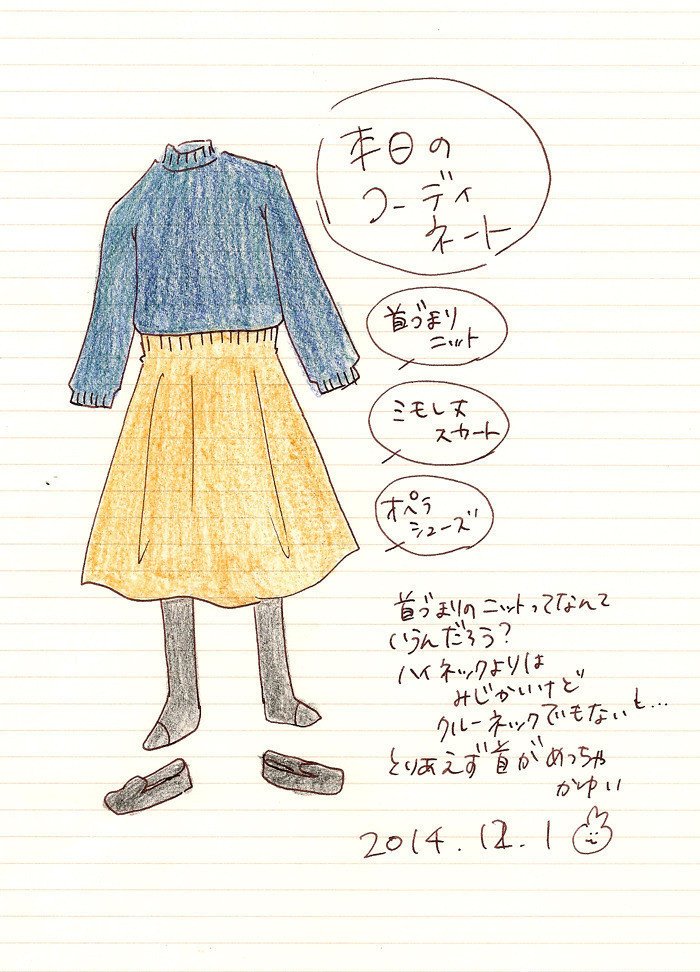 本日の
コーディ
ネート
首づまり
ニット
ミモレ丈
スカート
オペラ
シューズ
首づまりのニットってなんて
いうんだろう？
ハイネックよりは
みじかいけど
クルーネックでもないし…
とりあえず首がめっちゃ
かゆい
2014.12.1